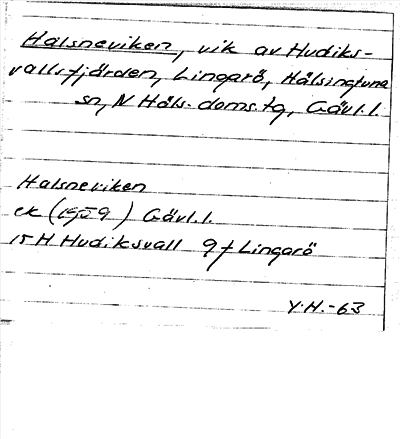 Halsneviken, vik av Hudiks-
vallsfjärden, Lingarö, Hälsingtuna
sn, N Häls. doms.tg, Gävl.l.
Halsneviken
ek (1959) Gävl.l.
15 H Hudiksvall 9f Lingarö
Y.H.-63